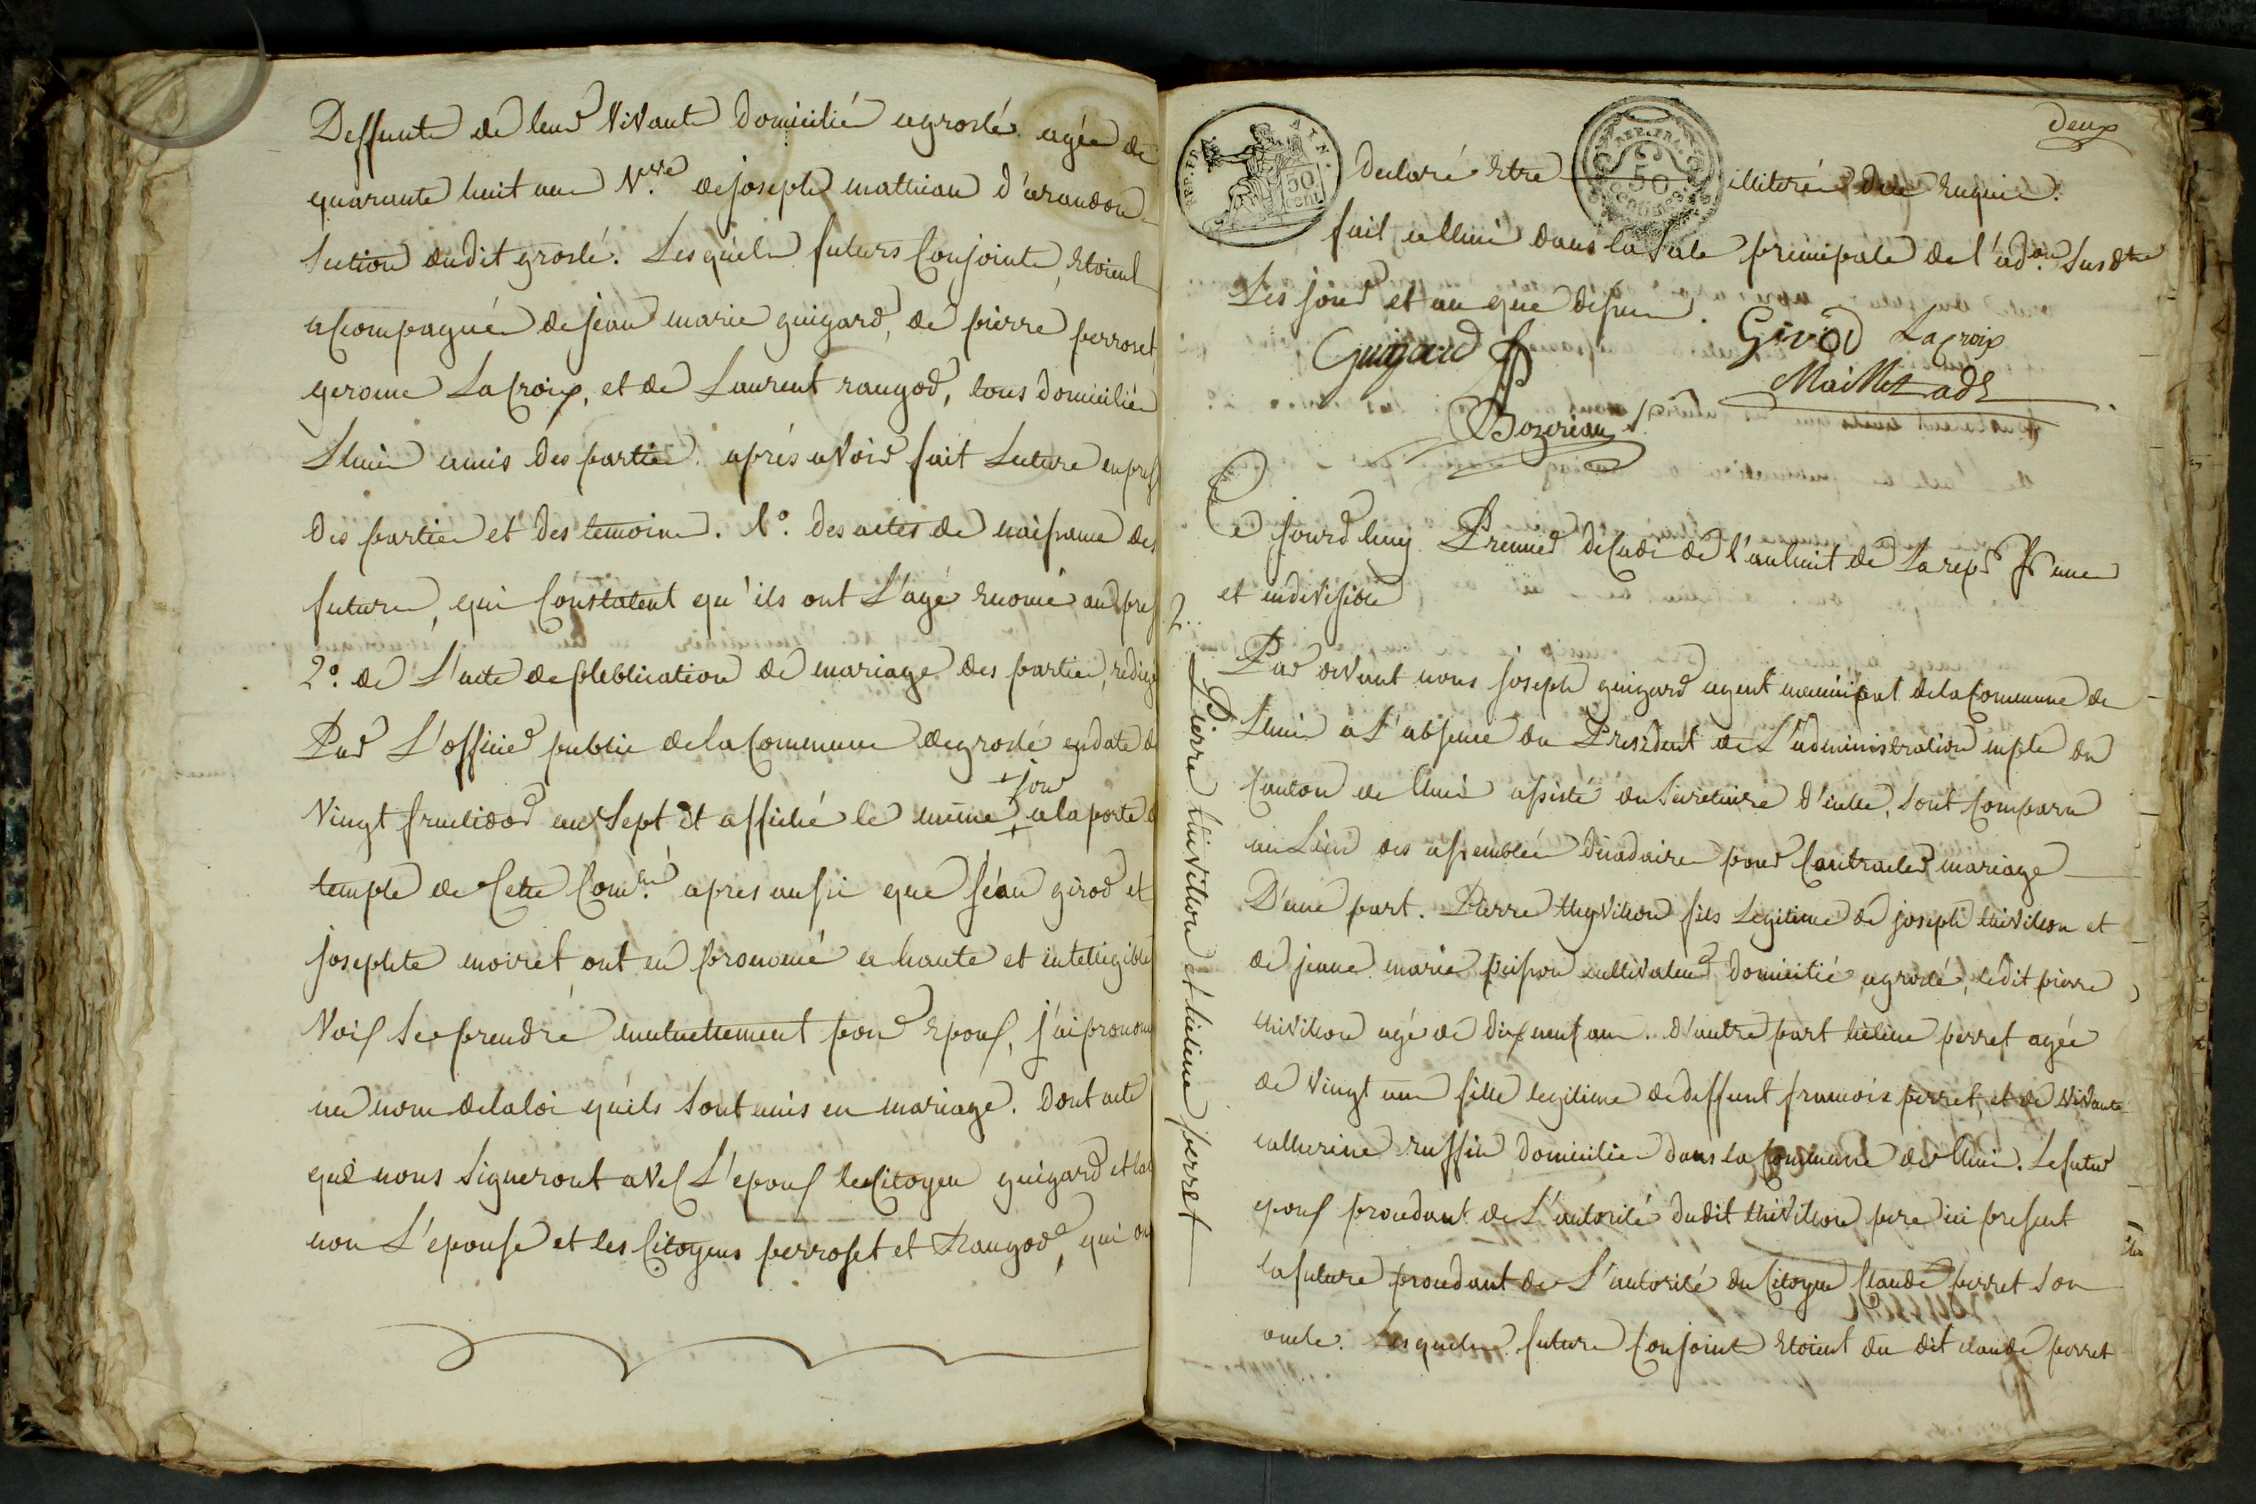 Deffunte de leur Vivant domicilié a groslé. agée de
quarante huit ans V.ve de joseph mathian d'arandon
section dudit groslé. Lesquels futurs Conjoints, Etoient
acompagnés de jean marie guigard, de pierre perroset
gerome La Croix, et de Laurent rangod, tous domiciliés
Lhuis amis des parties. aprés avoir fait Lecture en pres
des parties et des temoins. 1.° des actes de naissance des
futurs, qui Constatent qu'ils ont L'age Enoncé au pres
2.° de L'acte de pleblication de mariage des parties, redigé
Par L'officier public de la Commune de groslé en date d
Vingt fructidor an Sept et affiché le même + a la porte d
+ jour
temple de Cette Com.ne apres aussi que jéan girod et
josephte moiret ont eu prononcé a haute et intelligible
Voix Se prendre mutuellement pour Epoux, j'ai prononcé
au nom de la loi qu'ils Sont unis en mariage. Dont acte
que nous Signeront avec L'epoux le Citoyen guigard et la
non L'epouse et les Citoyens perroset et Rangod, qui on
deux
REP. FRA.
50
CENTIMES
50
cent.
declaré Etre illiterés de ce Enquis.
fait a Lhuis dans la Sale principale de l'ad.on Susd.te
Les jour et an que dessus.
Guigard
Girod Lacroix
Maillet adj
Bozerian S.
Ce jourd'huy Premier decadi de l'an huit de La rep. fr. une
et indivisible
2.
Pierre thivillon et heleine perret
Par devant nous joseph guigard agent municipal de la Commune de
Lhuis a L'absence du President de L'administration mple du
Canton de Lhuis assisté du Secretaire d'icelle, Sont Comparu
au Lieu des assemblées decadaires pour Contracter mariage
D'une part. Pierre thyvillon fils Legitime de joseph thivillon et
de jeanne marie puisson cultivateur domicilié a groslé, ledit pierre
thivillon agé de dix neuf ans. d'autre part heleine perret agée
de Vingt ans fille legitime de deffunt francois perret, et de Vivante
catherine ruffin domiciliés dans la Commune de Lhuis. Le futur
epoux procedant de L'autorité dudit thivillon pere ici present
la future procedant de L'autorité du Citoyen Claude perret Son
oncle. Lesquels futurs Conjoints Etoient du dit claude perret